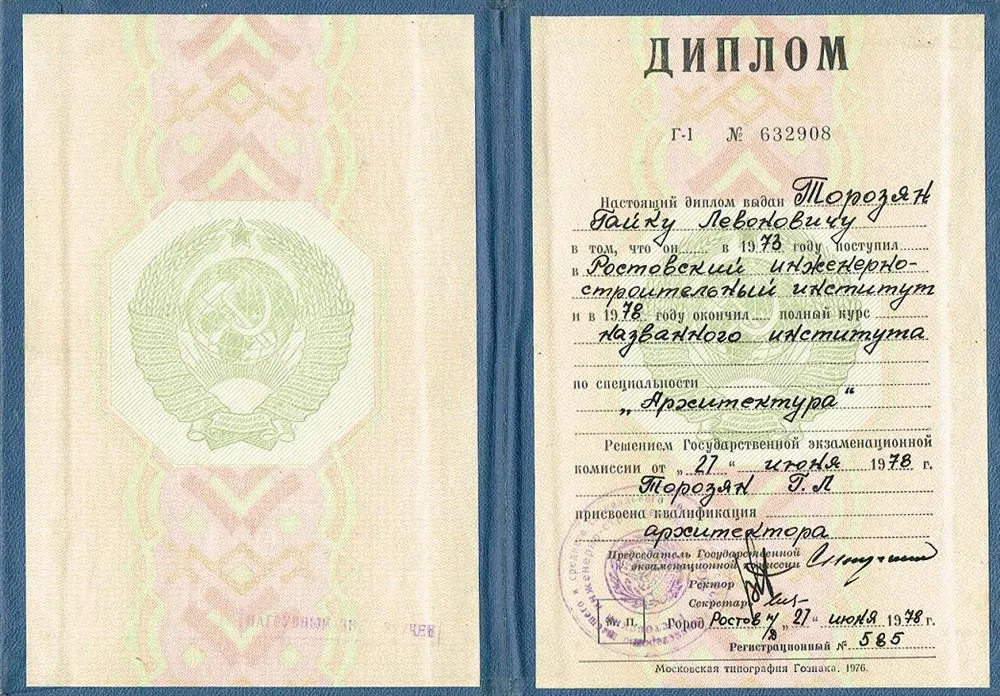 ДИПЛОМ
Г-I № 632908
Настоящий диплом выдан Торозян
Гайку Левоновичу
в том, что он в 1973 году поступил
в Ростовский инженерно-
строительный институт
и в 1978 году окончил полный курс
названного института
по специальности
„Архитектура“
Решением Государственной экзаменационной
комиссии от „27“ июня 1978 г.
Торозян Г.Л
присвоена квалификация
архитектора
Председатель Государственной
экзаменационной комиссии
Ректор
Секретарь
М. П. Город Ростов н/Д „27“ июня 1978 г.
Регистрационный № 585
Московская типография Гознака. 1976.